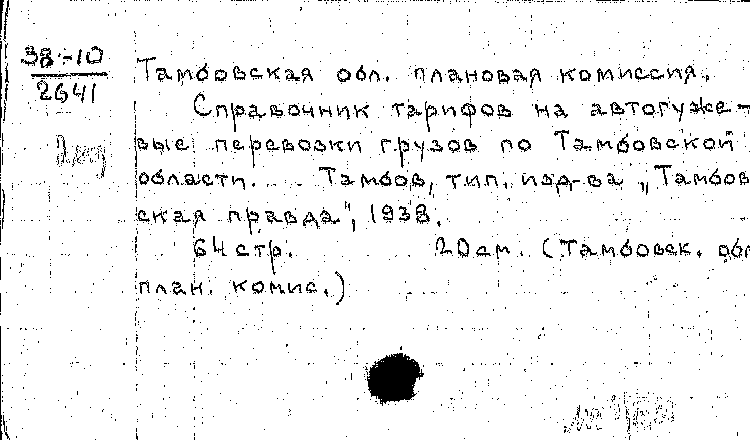 38-10
2641
2 экз
Тамбовская обл. плановая комиссия.
Справочник тарифов на автогуже-
вые перевозки грузов по Тамбовской
области. . . Тамбов, тип. изд-ва „Тамбов
ская правда", 1938.
64 стр. 20 см. (Тамбовск. обл
план. комис.)